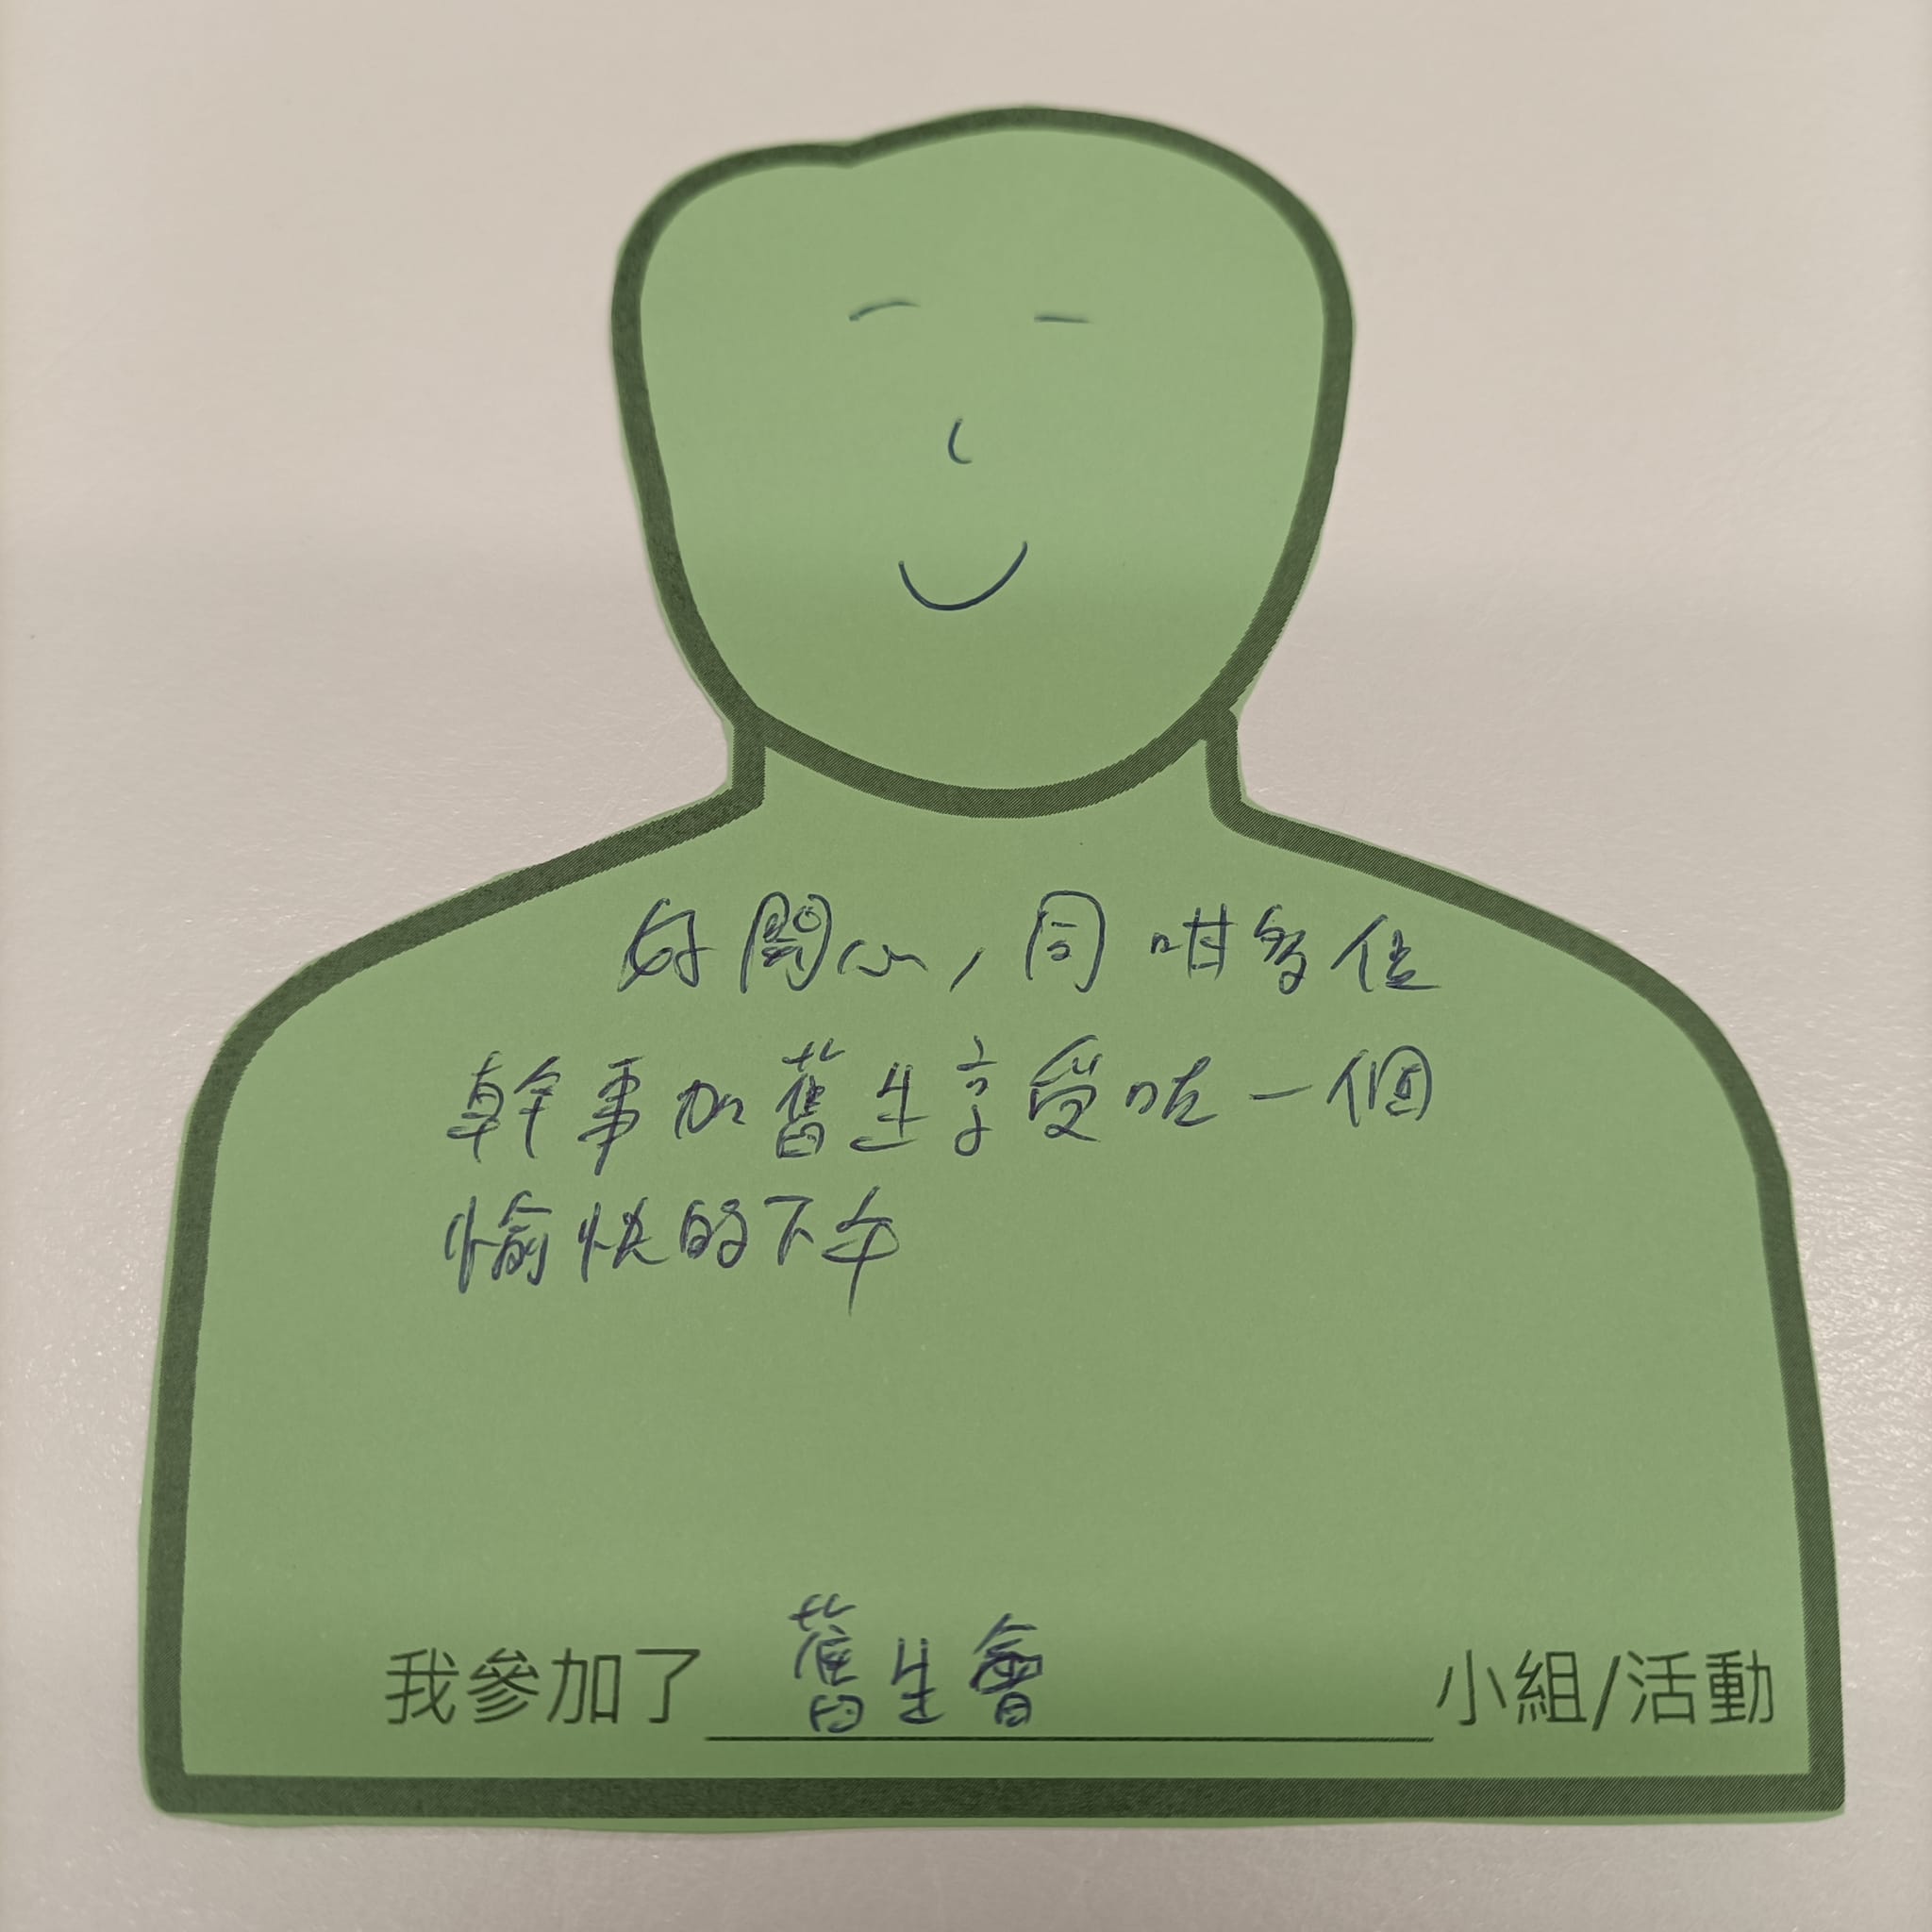 好開心，同咁多位
幹事加舊生享受咗一個
愉快的下午
我參加了 舊生會 小組/活動